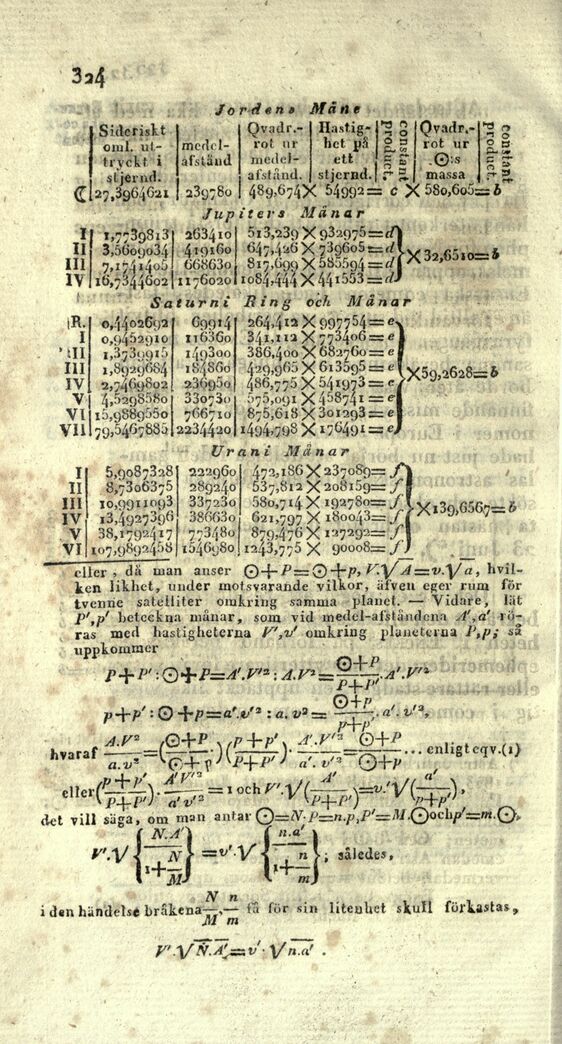 324
Jordens Måne
Sideriskt oml. ut- tryckt i stjernd. | medel- afstånd | Qvadr.- rot ur medel- afstånd. | Hastig- het på ett stjernd. | constant product. | Qvadr.- rot ur ☉:s massa | constant product.
☾ 27,3964621 | 239780 | 489,674 × 54992 = c × 580,605 = b
Jupiters Månar
I 1,7739813 | 263410 | 513,239 × 932975 = d
II 3,5609034 | 419160 | 647,426 × 739605 = d
III 7,1741405 | 668630 | 817,699 × 585594 = d
IV 16,7344602 | 1176020 | 1084,444 × 441553 = d
} × 32,6510 = b
Saturni Ring och Månar
R. 0,4402692 | 69914 | 264,412 × 997754 = e
I 0,9452910 | 116360 | 341,112 × 773406 = e
II 1,3739915 | 149300 | 386,400 × 682760 = e
III 1,8929684 | 184860 | 429,965 × 613595 = e
IV 2,7469802 | 236950 | 486,775 × 541973 = e
V 4,5298580 | 330730 | 575,091 × 458741 = e
VI 15,9889550 | 766710 | 875,618 × 301293 = e
VII 79,5467885 | 2234420 | 1494,798 × 176491 = e
} × 59,2628 = b
Urani Månar
I 5,9087328 | 222960 | 472,186 × 237089 = f
II 8,7306375 | 289240 | 537,812 × 208159 = f
III 10,9911093 | 337230 | 580,714 × 192780 = f
IV 13,4927396 | 386630 | 621,797 × 180043 = f
V 38,1792417 | 773480 | 879,476 × 127292 = f
VI 107,9892458 | 1546980 | 1243,775 × 90008 = f
} × 139,6567 = b
eller, då man anser ☉+P=☉+p, V.√A=v.√a, hvil-
ken likhet, under motsvarande vilkor, äfven eger rum för
tvenne satelliter omkring samma planet. — Vidare, låt
P',p' beteckna månar, som vid medel-afståndena A',a' rö-
ras med hastigheterna V',v' omkring planeterna P,p; så
uppkommer
P+P':☉+P=A'.V'²:A.V²=(☉+P)/(P+P').A'.V'²
p+p':☉+p=a'.v'²:a.v²=(☉+p)/(p+p').a'.v'²,
hvaraf A.V²/a.v²=((☉+P)/(☉+p))((p+p')/(P+P')).A'.V'²/a'.v'²=(☉+P)/(☉+p)... enligt eqv.(1)
eller((p+p')/(P+P')).A'V'²/a'v'²=1 och V'.√(A'/(P+P'))=v.'√(a'/(p+p')),
det vill säga, om man antar ☉=N.P=n.p,P'=M.☉och p'=m.☉,
V'.√{N.A'/(1+N/M)}=v'.√{n.a'/(1+n/m)}; således,
i den händelse bråkena N/M, n/m få för sin litenhet skull förkastas,
V'.√N.A'=v'.√n.a'.